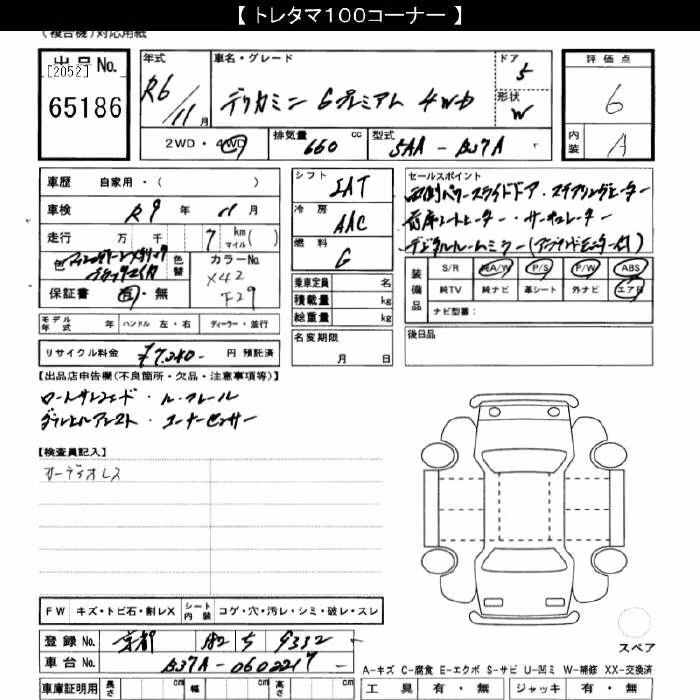 【 トレタマ100コーナー 】
(複合機)対応用紙
出品No.
[2052]
65186
年式
R6/11月
車名・グレード
デリカミニ Gプレミアム 4WD
ドア
5
形状
W
評価点
6
内装
A
2WD・4WD
排気量
660 cc
型式
5AA-B37A
車歴 自家用・( )
車検 R9 年 11 月
走行 万 千 7 km マイル( )
色
色替
カラーNo.
X42
F29
保証書 有・無
シフト
IAT
冷房
AAC
燃料
G
乗車定員 名
積載量 kg
総重量 kg
名変期限
月 日
セールスポイント
両側パワースライドドア・ステアリングヒーター
前席シートヒーター・サーキュレーター
デジタルルームミラー
装備品
S/R AA/W P/S P/W ABS
純TV 純ナビ 革シート 外ナビ エアB
ナビ型番:
後日品
モデル年式 年 ハンドル 左・右 ディーラー・並行
リサイクル料金 ¥7,280- 円 預託済
【出品店申告欄(不良箇所・欠品・注意事項等)】
ロールサンシェード・ルーフレール
ダウンヒルアシスト・コーナーセンサー
【検査員記入】
オーディオレス
FW キズ・トビ石・割レX シート内装 コゲ・穴・汚レ・シミ・破レ・スレ
登録No. 京都 582 ち 9332
車台No. B37A-0602217
車庫証明用 長さ cm 幅 cm 高さ cm
スペア
A-キズ C-腐食 E-エクボ S-サビ U-凹ミ W-補修 XX-交換済
工具 有・無 ジャッキ 有・無